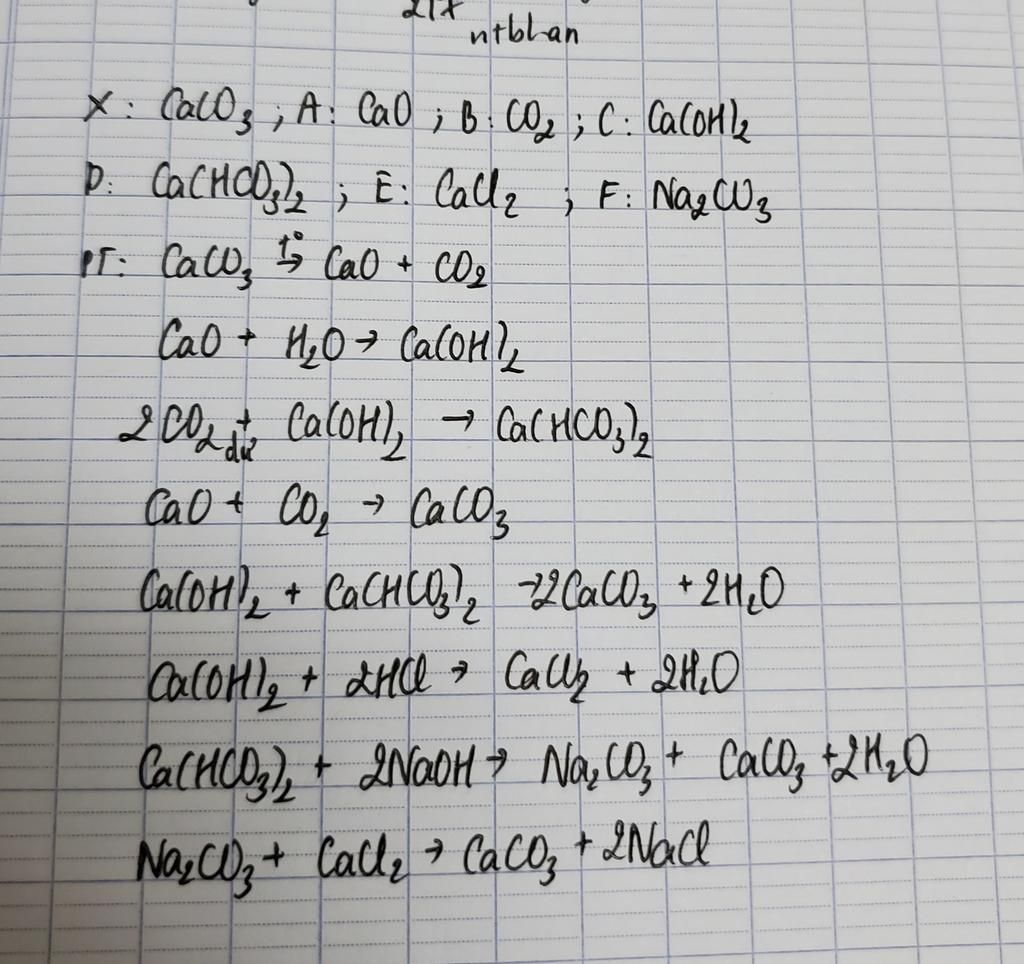 21x
n+bl-an
X: CaCO3 ; A: CaO ; B: CO2 ; C: Ca(OH)2
D: Ca(HCO3)2 ; E: CaCl2 ; F: Na2CO3
PT: CaCO3 t°→ CaO + CO2
CaO + H2O → Ca(OH)2
2CO2 dư + Ca(OH)2 → Ca(HCO3)2
CaO + CO2 → CaCO3
Ca(OH)2 + Ca(HCO3)2 → 2CaCO3 + 2H2O
Ca(OH)2 + 2HCl → CaCl2 + 2H2O
Ca(HCO3)2 + 2NaOH → Na2CO3 + CaCO3 + 2H2O
Na2CO3 + CaCl2 → CaCO3 + 2NaCl